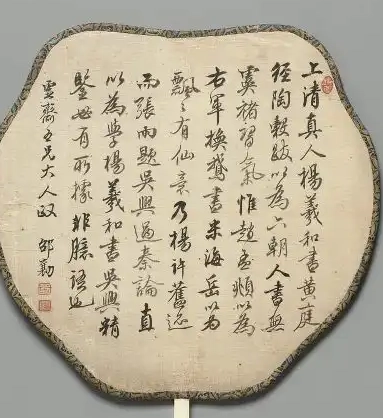 上清真人楊羲和書黃庭
經陶穀跋以為六朝人書無
虞褚習氣惟趙孟頫以為
右軍換鵝書米海岳以為
飄飄有仙意乃楊許舊迹
而張雨題吳興過秦論直
以為學楊羲和書吳興精
鑒必有所據非臆語也
雲齋五兄大人政 邵勳